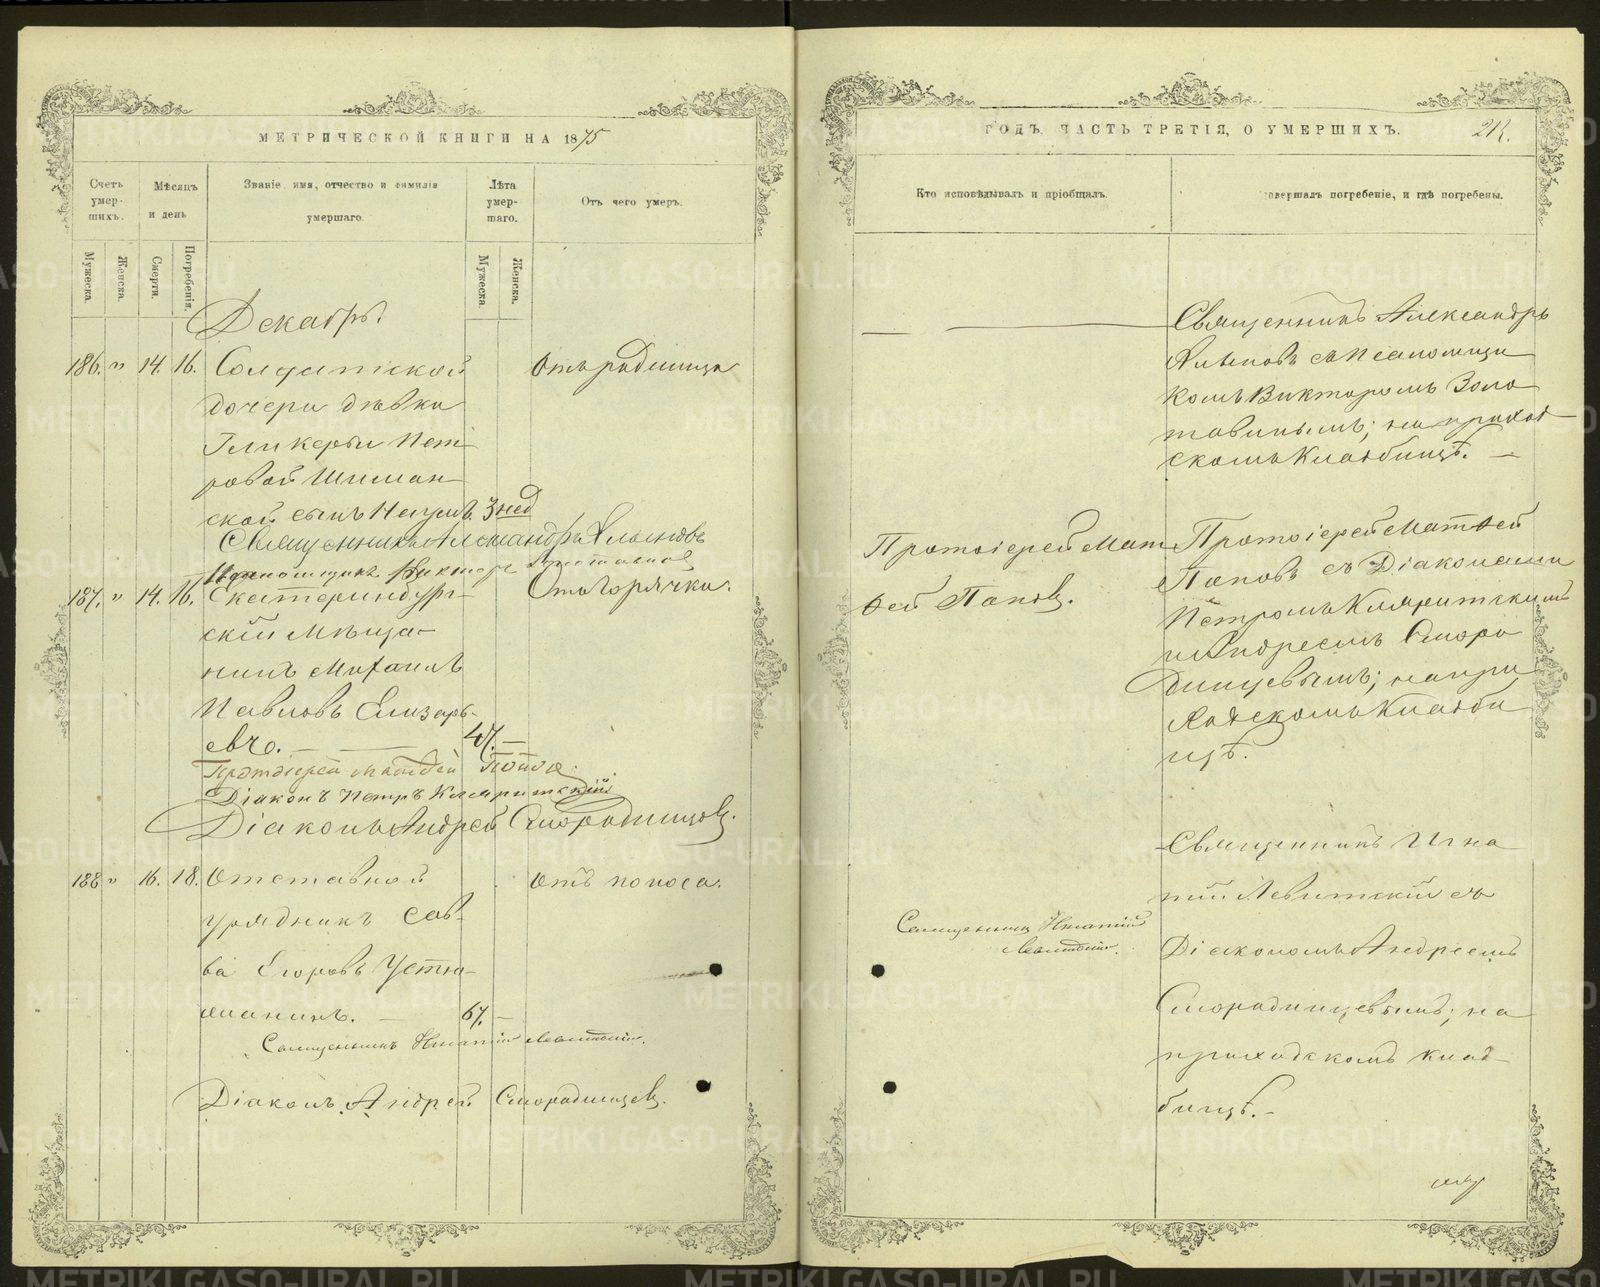 МЕТРИЧЕСКОЙ КНИГИ НА 1875
Счетъ умершихъ.
Мѣсяцъ и день
Званіе, имя, отчество и фамилія умершаго.
Лѣта умершаго.
Отъ чего умеръ.
Мужеска.
Женска.
Смерти.
Погребенія.
Мужеска
Женска.
Декабрь.
186. " 14. 16. Солдатской
Отъ родимца
дочери дѣвки
Гликеріи Пет-
ровой Шиман-
ской сынъ Наумъ. 3 нед
Священникъ Александръ
187. " 14. 16. Екатеринбург-
Отъ горячки.
скій мѣща-
нинъ Михаилъ
Павловъ Елизарь-
евъ. 47. —
Протоіерей Матѳей Поповъ.
Діаконъ Петръ
Діаконъ Андрей Смородинцовъ.
188 " 16. 18. Отставной
Отъ поноса.
урядникъ Сав-
ва Егоровъ Устю-
жанинъ. — 67. —
Священникъ Игнатій Левитскій.
Діаконъ Андрей Смородинцевъ.
ГОДЪ, ЧАСТЬ ТРЕТІЯ, О УМЕРШИХЪ.
Кто исповѣдывалъ и пріобщалъ.
совершалъ погребеніе, и гдѣ погребены.
Священникъ Александръ
съ псаломщи
комъ Викторомъ Золо
тавинымъ; на приход
скомъ кладбищѣ. —
Протоіерей Мат
ѳей Поповъ.
Протоіерей Матѳей
Поповъ съ Діаконами
Петромъ
и Андреемъ Сморо
динцевымъ; на при
ходскомъ кладби
щѣ.
Священникъ Игнатій
Левитскій.
Священникъ Игна
тій Левитскій съ
Діакономъ Андреемъ
Смородинцевымъ; на
приходскомъ клад
бищѣ. —
METRIKI.GASO-URAL.RU